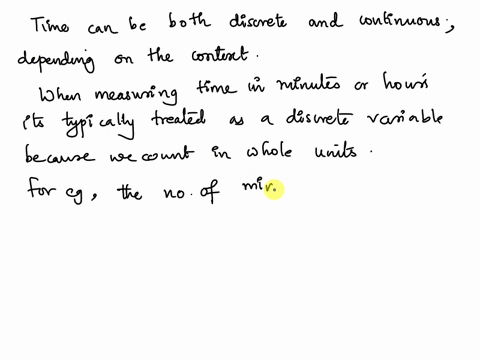 Time can be both discrete and continuous,
depending on the context.
When measuring time in minutes or hours
its typically treated as a discrete variable
because we count in whole units.
for eg, the no. of min